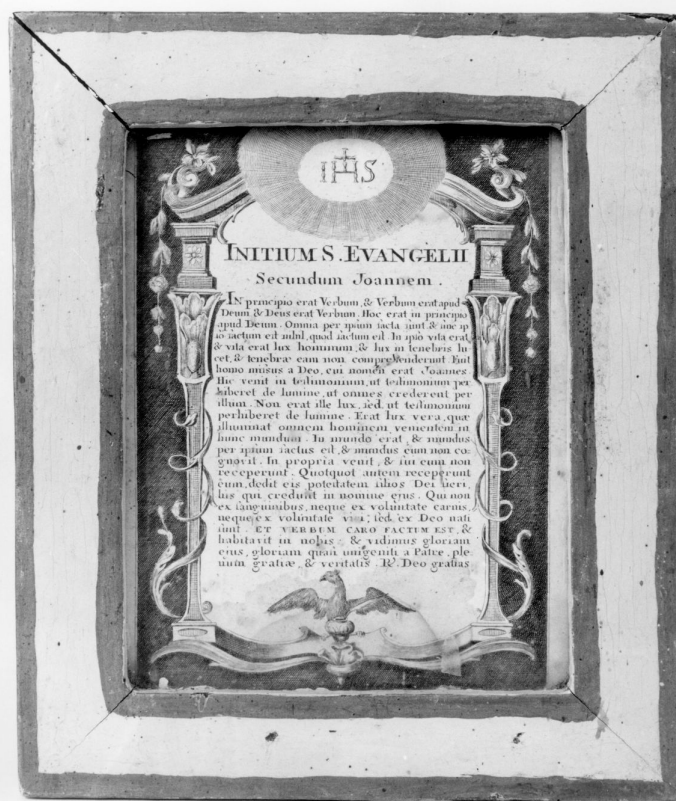 IHS
INITIUM S. EVANGELII
Secundum Joannem.
IN principio erat Verbum, & Verbum erat apud
Deum & Deus erat Verbum. Hoc erat in principio
apud Deum. Omnia per ipsum facta sunt & sine ip
so factum est nihil, quod factum est. In ipso vita erat
& vita erat lux hominum, & lux in tenebris lu
cet, & tenebræ eam non comprehenderunt. Fuit
homo missus a Deo, cui nomen erat Joannes.
Hic venit in testimonium, ut testimonium per
hiberet de lumine, ut omnes crederent per
illum. Non erat ille lux, sed ut testimonium
perhiberet de lumine. Erat lux vera, quæ
illuminat omnem hominem, venientem in
hunc mundum. In mundo erat, & mundus
per ipsum factus est, & mundus eum non co-
gnovit. In propria venit, & sui eum non
receperunt. Quotquot autem receperunt
eum, dedit eis potestatem filios Dei fieri,
his qui credunt in nomine ejus. Qui non
ex sanguinibus, neque ex voluntate carnis,
neque ex voluntate viri, sed ex Deo nati
sunt. ET VERBUM CARO FACTUM EST, &
habitavit in nobis, & vidimus gloriam
ejus, gloriam quasi unigeniti a Patre, ple
num gratiæ, & veritatis. ℟. Deo gratias